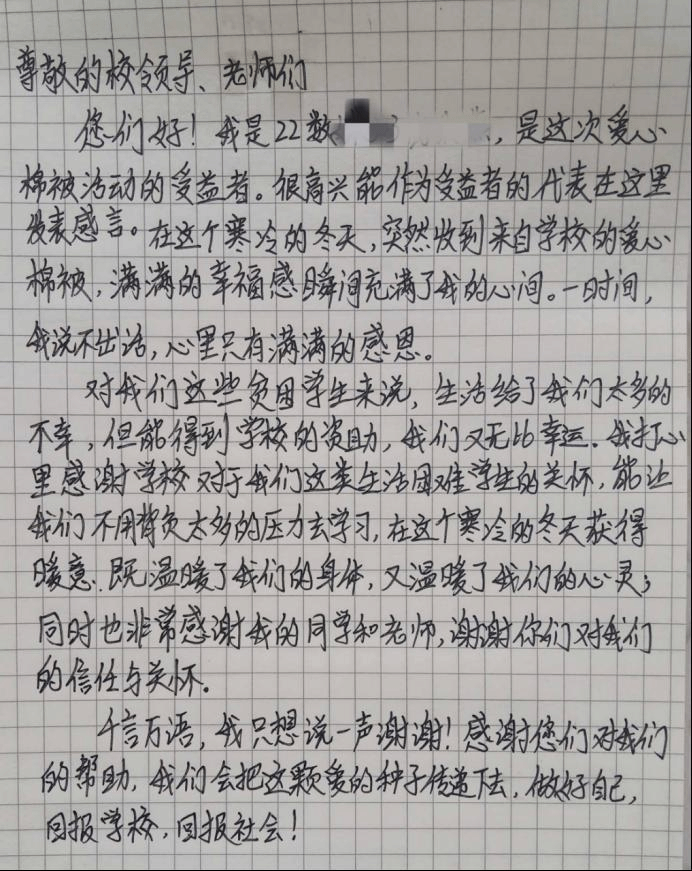 尊敬的校领导、老师们
您们好！我是22数，是这次爱心
棉被活动的受益者。很高兴能作为受益者的代表在这里
发表感言。在这个寒冷的冬天，突然收到来自学校的爱心
棉被，满满的幸福感瞬间充满了我的心间。一时间，
我说不出话，心里只有满满的感恩。
对我们这些贫困学生来说，生活给了我们太多的
不幸，但能得到学校的资助，我们又无比幸运。我打心
里感谢学校对于我们这类生活困难学生的关怀，能让
我们不用背负太多的压力去学习，在这个寒冷的冬天获得
暖意。既温暖了我们的身体，又温暖了我们的心灵；
同时也非常感谢我的同学和老师，谢谢你们对我们
的信任与关怀。
千言万语，我只想说一声谢谢！感谢您们对我们
的帮助，我们会把这颗爱的种子传递下去，做好自己，
回报学校，回报社会！